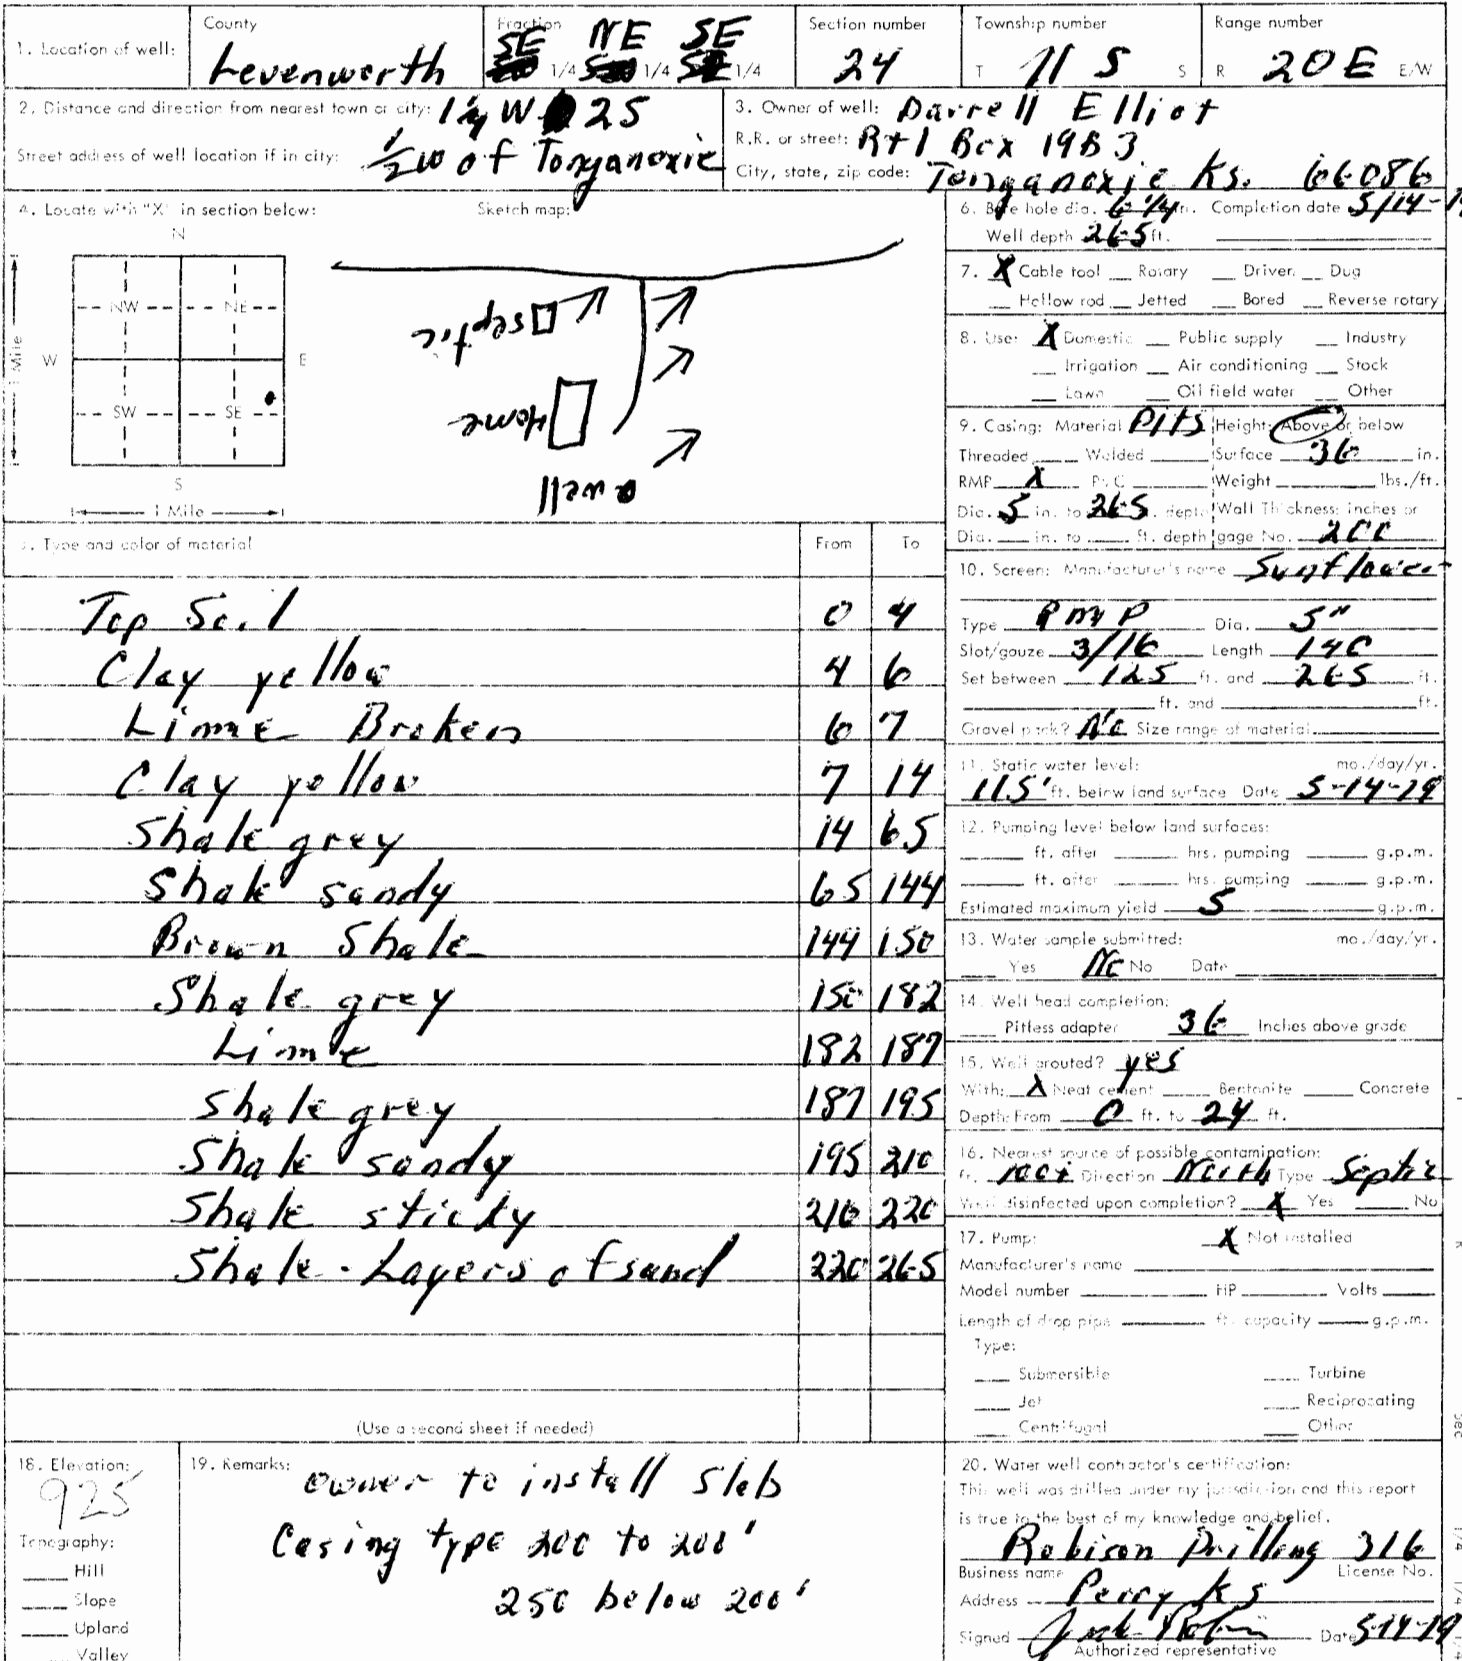 County Fraction Section number Township number Range number
1. Location of well: Levenworth SE 1/4 NE 1/4 SE 1/4 24 T 11 S S R 20E E/W
2. Distance and direction from nearest town or city: 1 1/4 W 2S
Street address of well location if in city: 1/2 W of Tonganoxie
3. Owner of well: Darrell Elliot
R.R. or street: Rt 1 Box 19B3
City, state, zip code: Tonganoxie Ks. 66086
4. Locate with "X" in section below: Sketch map:
N
NW NE
W E
SW SE
S
1 Mile
1 Mile
septic
Home
well
6. Bore hole dia. 6 1/4 in. Completion date 5/14-
Well depth 265 ft.
7. X Cable tool Rotary Driven Dug
Hollow rod Jetted Bored Reverse rotary
8. Use: X Domestic Public supply Industry
Irrigation Air conditioning Stock
Lawn Oil field water Other
9. Casing: Material Height: Above or below
Threaded Welded Surface 36 in.
RMP X PVC Weight lbs./ft.
Dia. 5 in. to 265 ft. depth Wall Thickness: inches or
Dia. in. to ft. depth gage No. 200
5. Type and color of material From To
Top Soil 0 4
Clay yellow 4 6
Lime Broken 6 7
Clay yellow 7 14
Shale grey 14 65
Shale sandy 65 144
Brown Shale 144 150
Shale grey 150 182
Lime 182 187
Shale grey 187 195
Shale sandy 195 210
Shale sticky 210 220
Shale - Layers of sand 220 265
(Use a second sheet if needed)
10. Screen: Manufacturer's name Sunflower
Type RMP Dia. 5"
Slot/gauze 3/16 Length 140
Set between 125 ft. and 265 ft.
ft. and ft.
Gravel pack? No Size range of material
11. Static water level: mo./day/yr.
115' ft. below land surface Date 5-14-79
12. Pumping level below land surfaces:
ft. after hrs. pumping g.p.m.
ft. after hrs. pumping g.p.m.
Estimated maximum yield 5 g.p.m.
13. Water sample submitted: mo./day/yr.
Yes No No Date
14. Well head completion:
Pitless adapter 36 Inches above grade
15. Well grouted? yes
With: X Neat cement Bentonite Concrete
Depth: From 0 ft. to 24 ft.
16. Nearest source of possible contamination:
ft. 100+ Direction North Type Septic
Well disinfected upon completion? X Yes No
17. Pump: X Not installed
Manufacturer's name
Model number HP Volts
Length of drop pipe ft. capacity g.p.m.
Type:
Submersible Turbine
Jet Reciprocating
Centrifugal Other
18. Elevation:
925
Topography:
Hill
Slope
Upland
Valley
19. Remarks:
owner to install Slab
Casing type 200 to 200'
250 below 200'
20. Water well contractor's certification:
This well was drilled under my jurisdiction and this report
is true to the best of my knowledge and belief.
Robison Drilling 316
Business name License No.
Address Perry Ks
Signed Date 5-14-79
Authorized representative